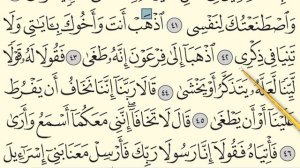 وَٱصۡطَنَعۡتُكَ لِنَفۡسِي ٤١ ٱذۡهَبۡ أَنتَ وَأَخُوكَ بِـَٔايَٰتِي وَلَا
تَنِيَا فِي ذِكۡرِي ٤٢ ٱذۡهَبَآ إِلَىٰ فِرۡعَوۡنَ إِنَّهُۥ طَغَىٰ ٤٣ فَقُولَا لَهُۥ قَوۡلٗا
لَّيِّنٗا لَّعَلَّهُۥ يَتَذَكَّرُ أَوۡ يَخۡشَىٰ ٤٤ قَالَا رَبَّنَآ إِنَّنَا نَخَافُ أَن يَفۡرُطَ
عَلَيۡنَآ أَوۡ أَن يَطۡغَىٰ ٤٥ قَالَ لَا تَخَافَآۖ إِنَّنِي مَعَكُمَآ أَسۡمَعُ وَأَرَىٰ
٤٦ فَأۡتِيَاهُ فَقُولَآ إِنَّا رَسُولَا رَبِّكَ فَأَرۡسِلۡ مَعَنَا بَنِيٓ إِسۡرَٰٓءِيلَ